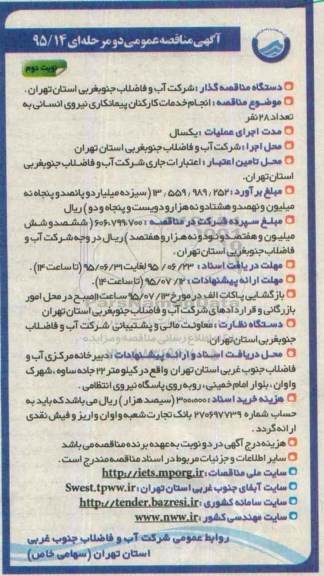 آگهی مناقصه عمومی دو مرحله ای ۹۵/۱۴
نوبت دوم
دستگاه مناقصه گذار : شرکت آب و فاضلاب جنوبغربی استان تهران .
موضوع مناقصه : انجام خدمات کارکنان پیمانکاری نیروی انسانی به
تعداد ۲۸ نفر
مدت اجرای عملیات : یکسال
محل اجرا : شرکت آب و فاضلاب جنوبغربی استان تهران
محل تامین اعتبار : اعتبارات جاری شرکت آب و فاضلاب جنوبغربی
استان تهران.
مبلغ برآورد : ۱۳٫۵۵۹٫۹۸۹٫۲۵۲ (سیزده میلیارد و پانصد و پنجاه و نه
میلیون و نهصد و هشتاد و نه هزار و دویست و پنجاه و دو) ریال
مبلغ سپرده شرکت در مناقصه : ۶۰۶٫۷۹۹٫۷۰۰ (ششصد و شش
میلیون و هفتصد و نود و نه هزار و هفتصد) ریال در وجه شرکت آب و
فاضلاب جنوبغربی استان تهران.
مهلت دریافت اسناد : ۹۵/۰۶/۲۳ لغایت ۹۵/۰۶/۳۱ (تا ساعت ۱۴).
مهلت ارائه پیشنهادات : ۹۵/۰۷/۱۲ (تا ساعت ۱۴).
بازگشایی پاکات الف در مورخ ۹۵/۰۷/۱۳ ساعت ۱۱ صبح در محل امور
بازرگانی و قراردادهای شرکت آب و فاضلاب جنوبغربی استان تهران
دستگاه نظارت : معاونت مالی و پشتیبانی شرکت آب و فاضلاب
جنوبغربی استان تهران.
محل دریافت اسناد و ارائه پیشنهادات : دبیرخانه مرکزی آب و
فاضلاب جنوب غربی استان تهران واقع در کیلومتر ۲۲ جاده ساوه ، شهرک
واوان ، بلوار امام خمینی ، روبه روی پاسگاه نیروی انتظامی .
هزینه خرید اسناد : ۳۰۰٫۰۰۰ (سیصد هزار) ریال می باشد که باید به
حساب شماره ۲۷۰۶۹۷۷۳۹ بانک تجارت شعبه واوان واریز و فیش نقدی
ارائه گردد .
هزینه درج آگهی در دو نوبت به عهده برنده مناقصه می باشد
سایر اطلاعات و جزئیات مربوط در اسناد مناقصه مندرج است .
سایت ملی مناقصات : http://iets.mporg.ir
سایت آبفای جنوب غربی استان تهران : Swest.tpww.ir
سایت سامانه کشوری : http://tender.bazresi.ir
سایت مهندسی کشور : www.nww.ir
روابط عمومی شرکت آب و فاضلاب جنوب غربی
استان تهران (سهامی خاص)